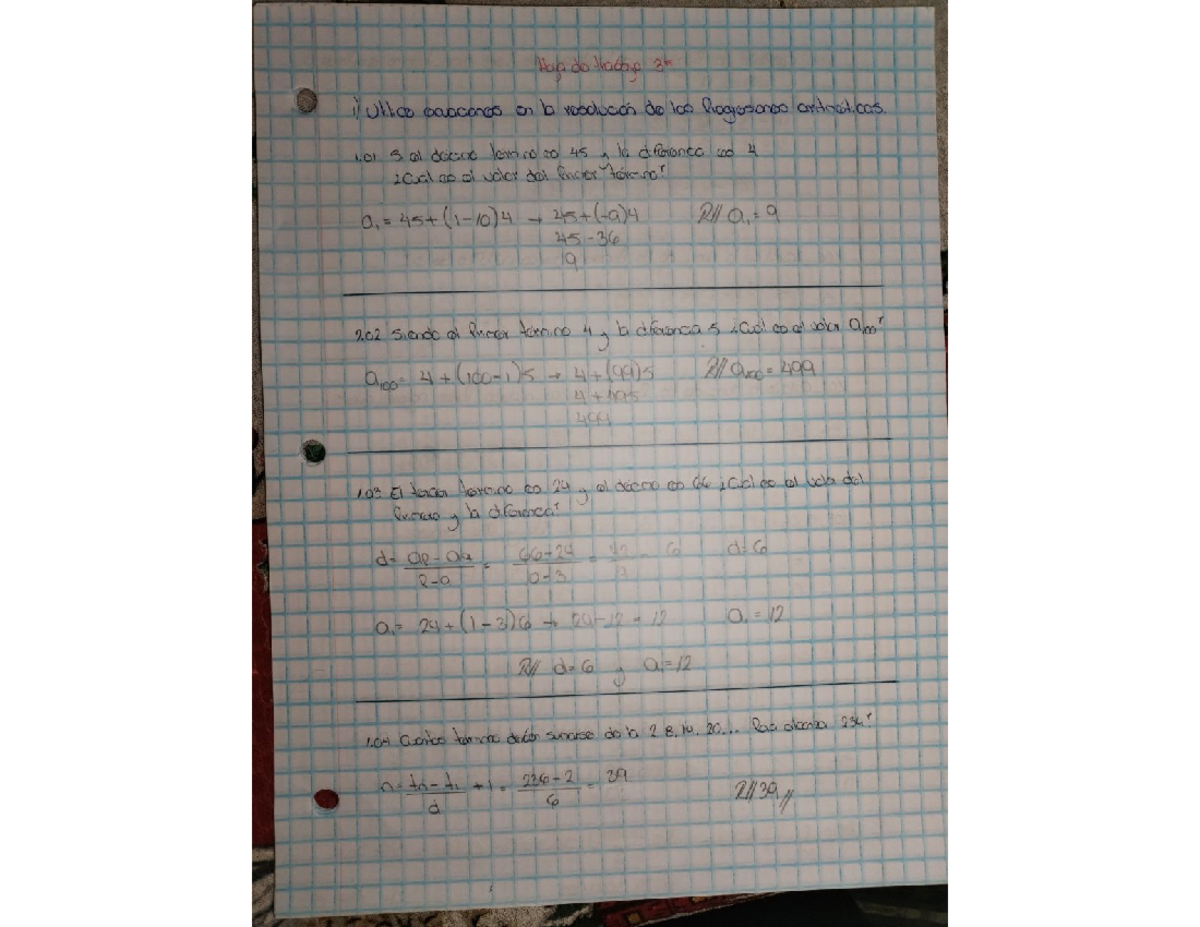 Hoja de trabajo 3
1) Utilice ecuaciones en la resolución de las Progresiones aritméticas.
1.01 Si el décimo término es 45 y la diferencia es 4
¿Cuál es el valor del Primer término?
a₁ = 45+(1-10)4 → 45+(-9)4 R// a₁ = 9
45-36
9
2.02 Siendo el Primer término 4 y la diferencia 5 ¿Cuál es el valor a₁₀₀?
a₁₀₀= 4+(100-1)5 → 4+(99)5 R// a₁₀₀=499
4+495
499
1.03 El tercer término es 24 y el décimo es 66 ¿Cuál es el valor del
Primero y la diferencia?
d= = 66-24 = 42 = 6 d=6
a₁= 24+(1-3)6 → 24-12 = 12 a₁=12
R// d=6 y a₁=12
1.04 Cuántos términos deben sumarse de la 2, 8, 14, 20... Para alcanzar
+1 = 236-2 = 39 R// 39 //
d 6